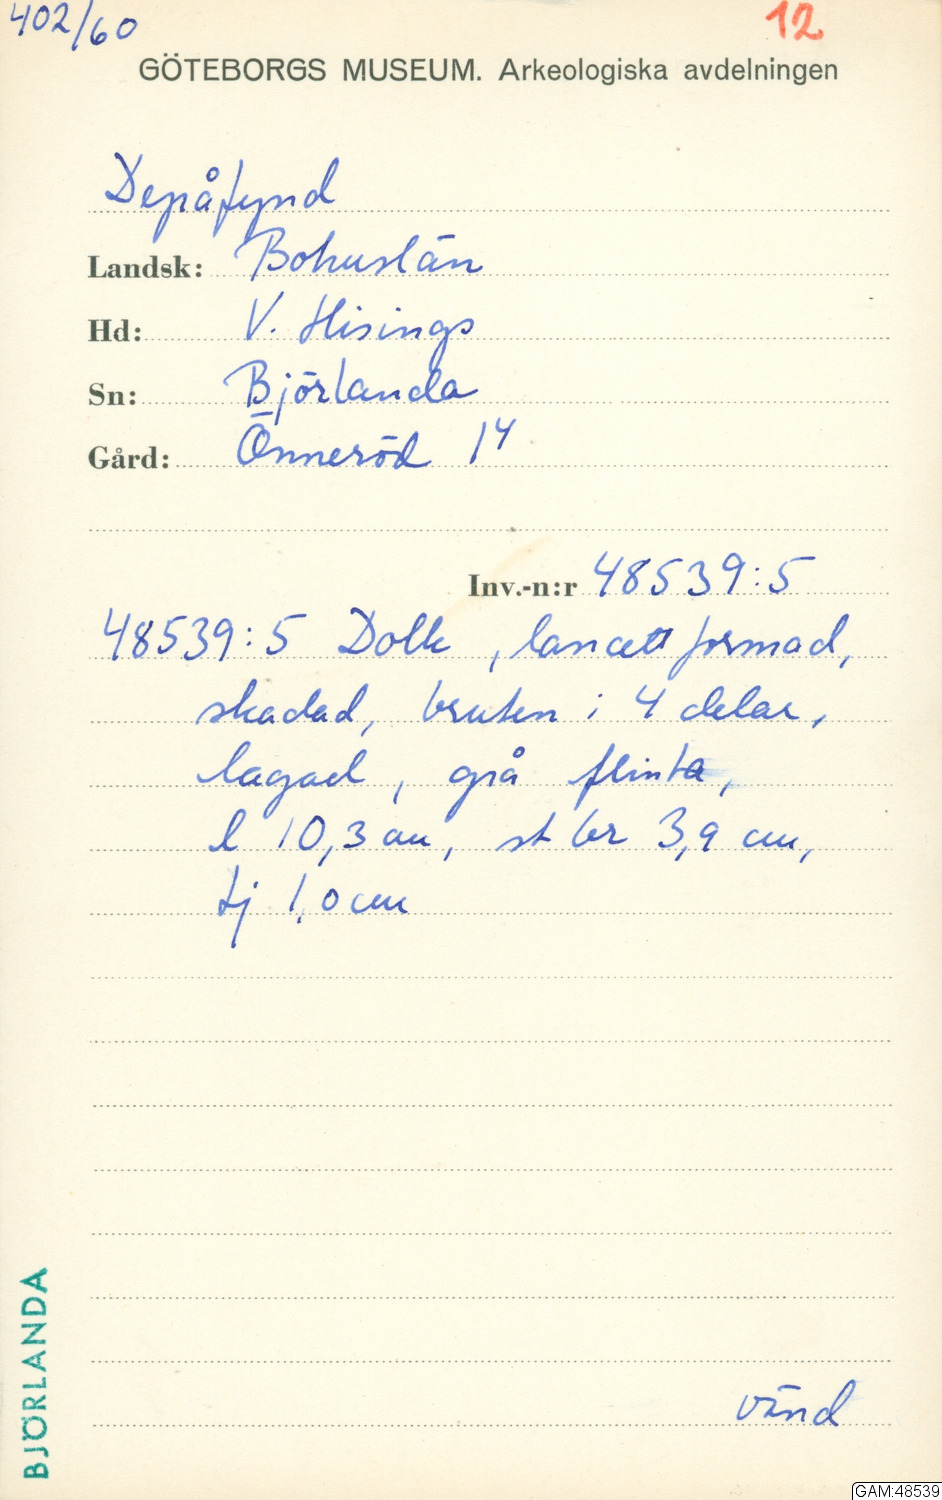 402/60
12
GÖTEBORGS MUSEUM. Arkeologiska avdelningen
Depåfynd
Landsk: Bohuslän
Hd: V. Hisings
Sn: Björlanda
Gård: Önneröd 14
Inv.-n:r 48539:5
48539:5 Dolk, lancettformad,
skadad, bruten i 4 delar,
lagad, grå flinta,
l 10,3 cm, st br 3,9 cm,
tj 1,0 cm
vänd
BJÖRLANDA
GAM:48539